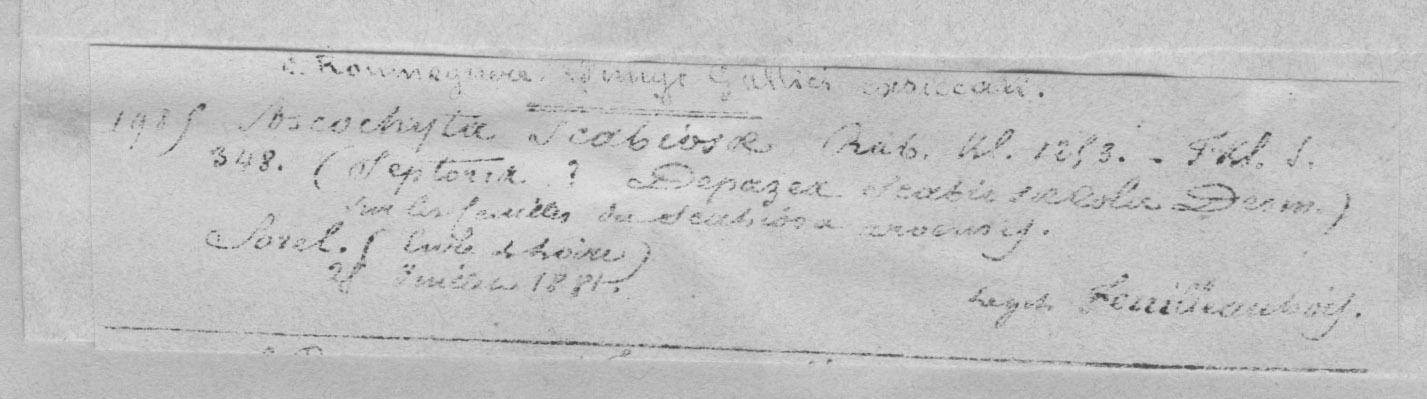 C. Roumeguère. Fungi Gallici exsiccati.
1985 Ascochyta Scabiosæ Rab. Kl. 1253. - Fkl. S.
348. (Septoria ? Depazea Scabiosæcola Desm.)
Sur les feuilles du Scabiosa arvensis.
Sorel. (Eure & Loire)
28 1881.
Legit. Feuilleaubois.